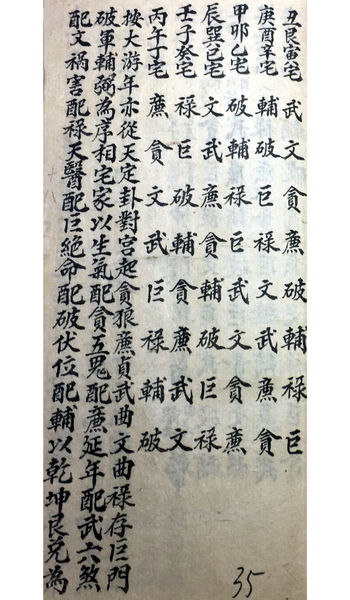 丑艮寅宅 武文貪廉破輔祿巨
庚酉辛宅 輔破巨祿文武廉貪
甲卯乙宅 破輔祿巨武文貪廉
辰巽巳宅 文武廉貪輔破巨祿
壬子癸宅 祿巨破輔貪廉武文
丙午丁宅 廉貪文武巨祿輔破
按大游年亦從天定卦對宮起貪狼廉貞武曲文曲祿存巨門
破軍輔弼為序相宅家以生氣配貪五鬼配廉延年配武六煞
配文禍害配祿天醫配巨絕命配破伏位配輔以乾坤艮兌為
35